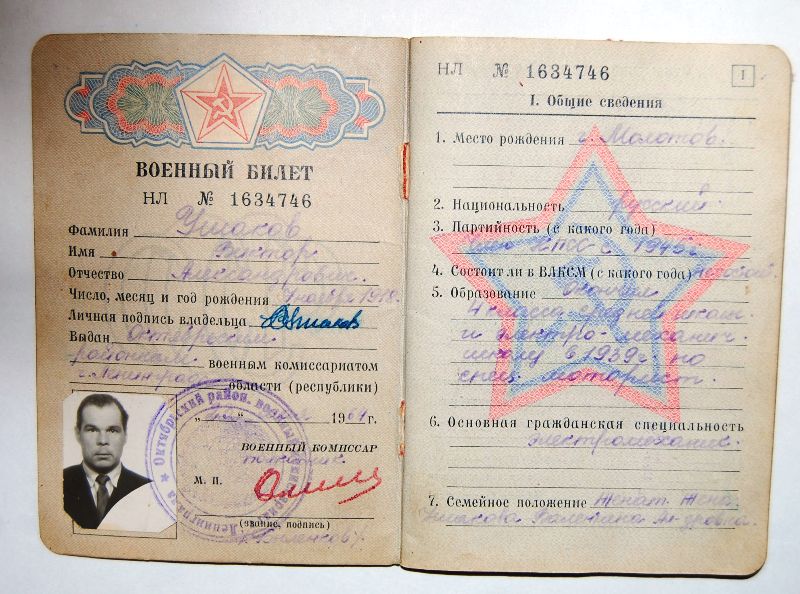 ВОЕННЫЙ БИЛЕТ
НЛ № 1634746
Фамилия Ушаков
Имя Виктор
Отчество Александрович
Число, месяц и год рождения
Личная подпись владельца
Выдан Октябрьским
районным военным комиссариатом
г. Ленинграда области (республики)
1961г.
ВОЕННЫЙ КОМИССАР
М. П.
(звание, подпись)
Октябрьский район. военный
Ленинграда
НЛ № 1634746
1
I. Общие сведения
1. Место рождения г. Молотов.
2. Национальность русский.
3. Партийность (с какого года)
член КПСС с 1945г.
4. Состоит ли в ВЛКСМ (с какого года)
5. Образование Окончил
4 класса средней школ.
и электро-механич.
школу в 1939г. по
спец. моторист.
6. Основная гражданская специальность
электромеханик.
7. Семейное положение Женат. Жена
Ушакова Валентина